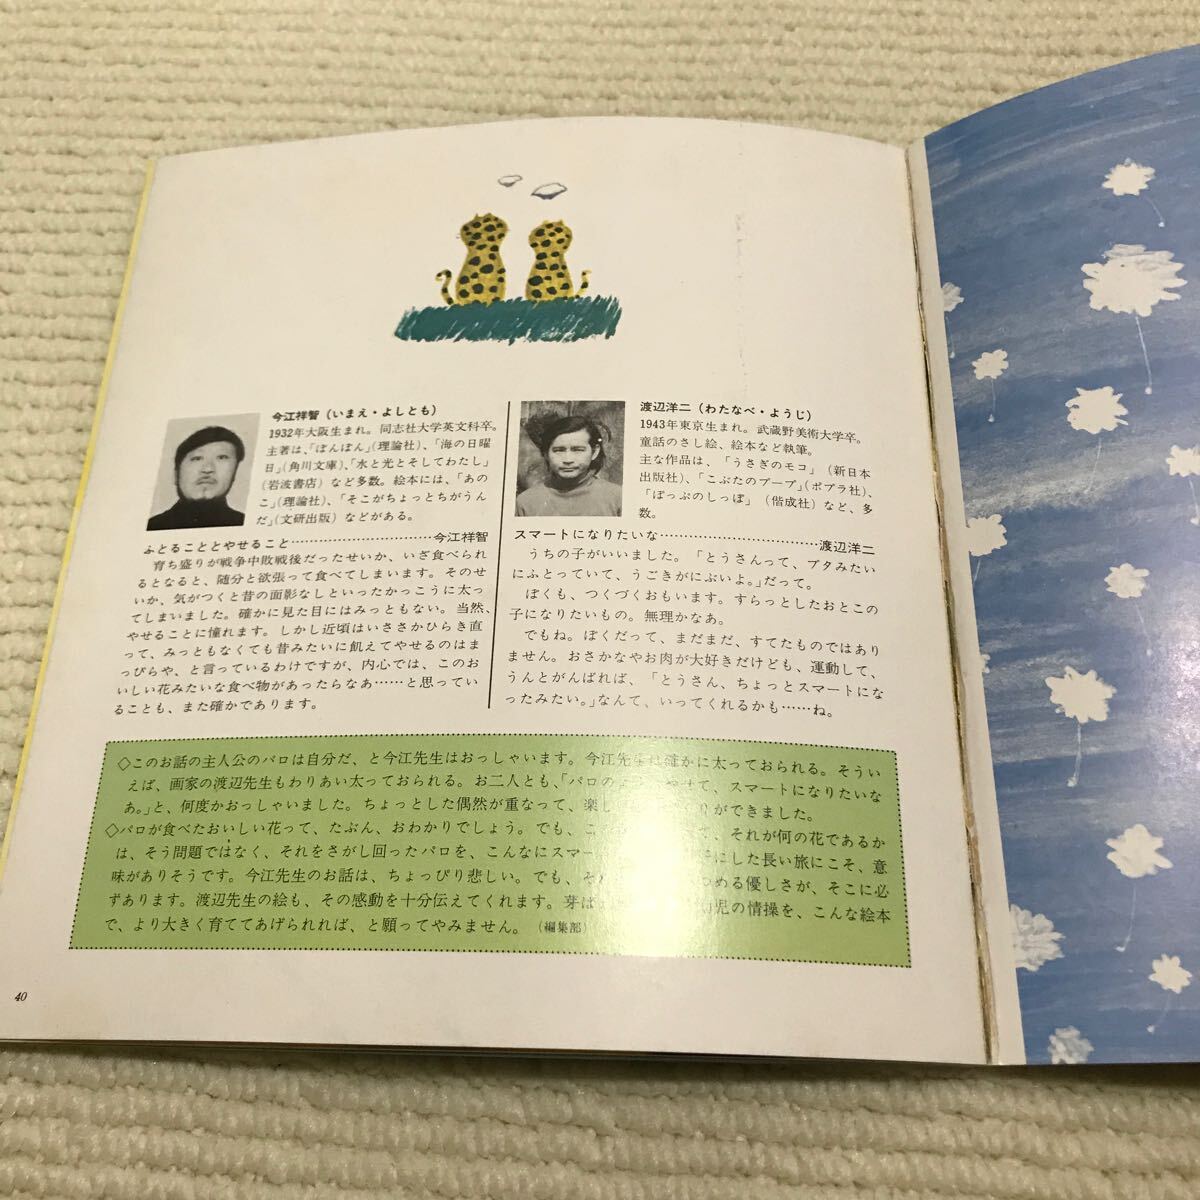 今江祥智（いまえ・よしとも）
1932年大阪生まれ。同志社大学英文科卒。
主著は、「ぼんぼん」（理論社）、「海の日曜
日」（角川文庫）、「水と光とそしてわたし」
（岩波書店）など多数。絵本には、「あの
こ」（理論社）、「そこがちょっとちがうん
だ」（文研出版）などがある。
ふとることとやせること……………………今江祥智
育ち盛りが戦争中敗戦後だったせいか、いざ食べられ
るとなると、随分と欲張って食べてしまいます。そのせ
いか、気がつくと昔の面影なしといったかっこうに太っ
てしまいました。確かに見た目にはみっともない。当然、
やせることに憧れます。しかし近頃はいささかひらき直
って、みっともなくても昔みたいに飢えてやせるのはま
っぴらや、と言っているわけですが、内心では、このお
いしい花みたいな食べ物があったらなあ……と思ってい
ることも、また確かであります。
渡辺洋二（わたなべ・ようじ）
1943年東京生まれ。武蔵野美術大学卒。
童話のさし絵、絵本など執筆。
主な作品は、「うさぎのモコ」（新日本
出版社）、「こぶたのブープ」（ポプラ社）、
「ぽっぷのしっぽ」（偕成社）など、多
数。
スマートになりたいな……………………渡辺洋二
うちの子がいいました。「とうさんって、ブタみたい
にふとっていて、うごきがにぶいよ。」だって。
ぼくも、つくづくおもいます。すらっとしたおとこの
子になりたいもの。無理かなあ。
でもね。ぼくだって、まだまだ、すてたものではあり
ません。おさかなやお肉が大好きだけども、運動して、
うんとがんばれば、「とうさん、ちょっとスマートにな
ったみたい。」なんて、いってくれるかも……ね。
◇このお話の主人公のバロは自分だ、と今江先生はおっしゃいます。今江先生は確かに太っておられる。そうい
えば、画家の渡辺先生もわりあい太っておられる。お二人とも、「バロのよ やせて、スマートになりたいな
あ。」と、何度かおっしゃいました。ちょっとした偶然が重なって、楽し りができました。
◇バロが食べたおいしい花って、たぶん、おわかりでしょう。でも、こ て、それが何の花であるか
は、そう問題ではなく、それをさがし回ったバロを、こんなにスマー にした長い旅にこそ、意
味がありそうです。今江先生のお話は、ちょっぴり悲しい。でも、それ つめる優しさが、そこに必
ずあります。渡辺先生の絵も、その感動を十分伝えてくれます。芽ば 幼児の情操を、こんな絵本
で、より大きく育ててあげられれば、と願ってやみません。（編集部）
40